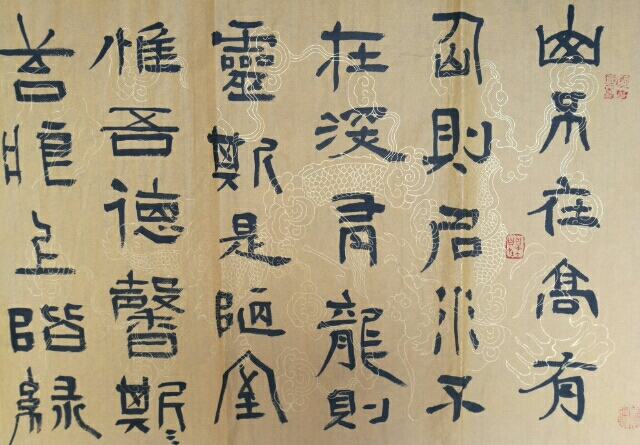 山不在高有
仙則名水不
在深有龍則
靈斯是陋室
惟吾德馨斯
苔痕上階綠